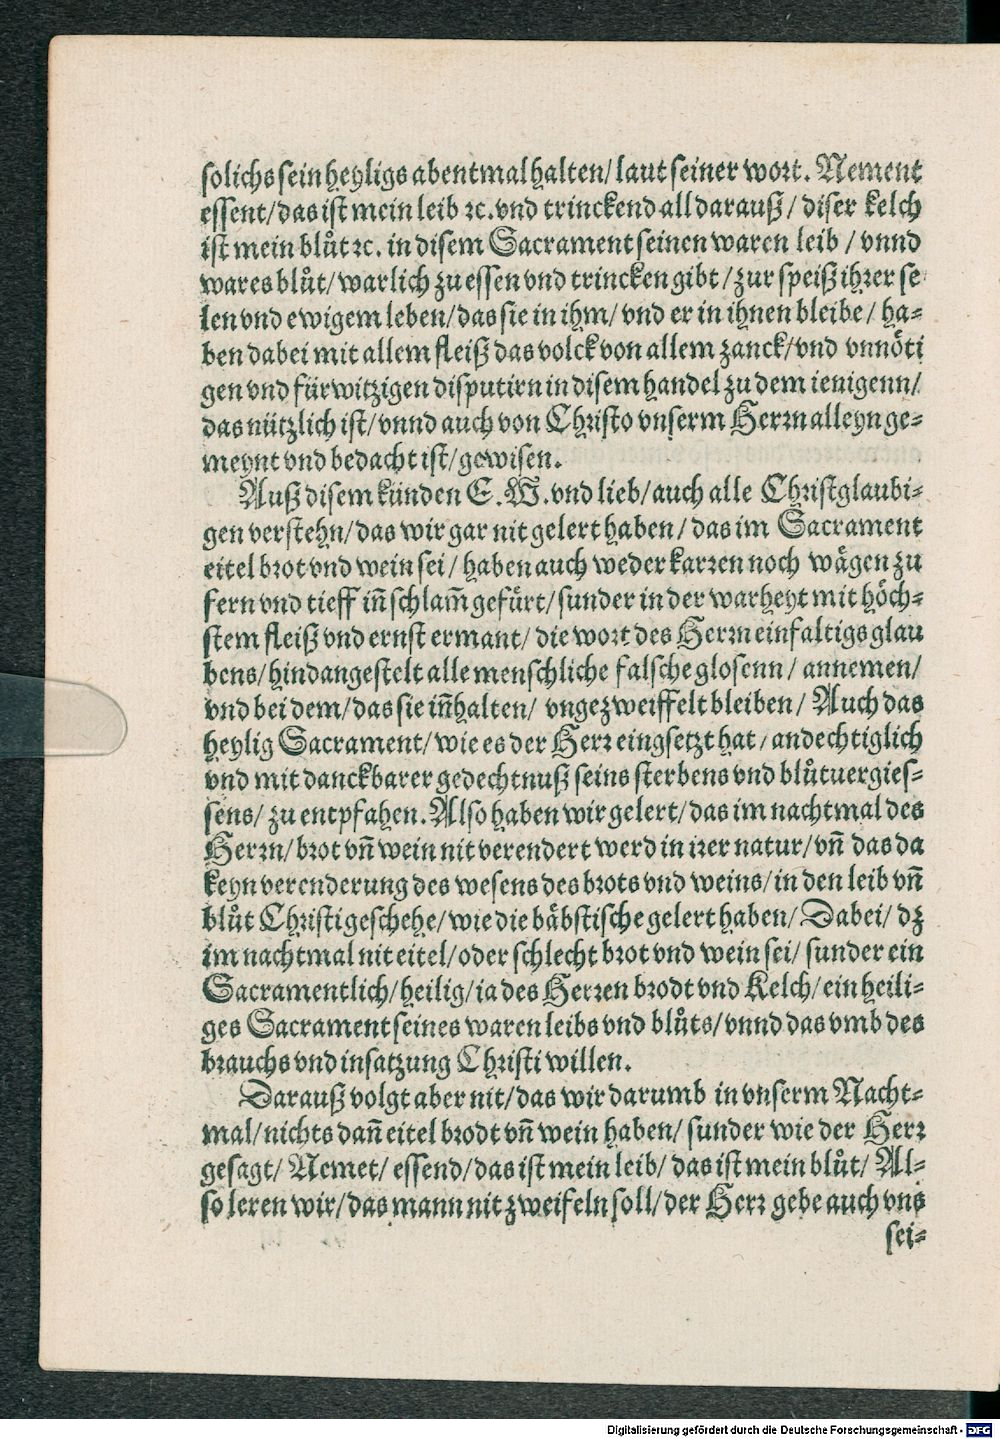 solichs sein heyligs abentmal halten/ laut seiner wort. Nement
essent/ das ist mein leib ꝛc. vnd trinckend all darauß/ diser kelch
ist mein blůt ꝛc. in disem Sacrament seinen waren leib / vnnd
wares blůt/ warlich zu essen vnd trincken gibt / zur speiß ihrer se
len vnd ewigem leben/ das sie in ihm/ vnd er in ihnen bleibe/ ha⸗
ben dabei mit allem fleiß das volck von allem zanck/ vnd vnnöti
gen vnd fürwitzigen disputirn in disem handel zu dem ienigenn/
das nützlich ist/ vnnd auch von Christo vnserm Herrn alleyn ge⸗
meynt vnd bedacht ist/ gewisen.
Auß disem künden E. W. vnd lieb/ auch alle Christglaubi⸗
gen verstehn/ das wir gar nit gelert haben/ das im Sacrament
eitel brot vnd wein sei/ haben auch weder karren noch wägen zu
fern vnd tieff iñ schlam̃ gefürt/ sunder in der warheyt mit höch⸗
stem fleiß vnd ernst ermant/ die wort des Herrn einfaltigs glau
bens/ hindangestelt alle menschliche falsche glosenn/ annemen/
vnd bei dem/ das sie iñhalten/ vngezweiffelt bleiben/ Auch das
heylig Sacrament/ wie es der Herr eingsetzt hat/ andechtiglich
vnd mit danckbarer gedechtnuß seins sterbens vnd blůtuergies⸗
sens/ zu entpfahen. Also haben wir gelert/ das im nachtmal des
Herrn/ brot vñ wein nit verendert werd in irer natur/ vñ das da
keyn verenderung des wesens des brots vnd weins/ in den leib vñ
blůt Christi geschehe/ wie die bäbstische gelert haben/ Dabei/ dz
im nachtmal nit eitel/ oder schlecht brot vnd wein sei/ sunder ein
Sacramentlich/ heilig/ ia des Herren brodt vnd Kelch/ ein heili⸗
ges Sacrament seines waren leibs vnd blůts/ vnnd das vmb des
brauchs vnd insatzung Christi willen.
Darauß volgt aber nit/ das wir darumb in vnserm Nacht⸗
mal/ nichts dañ eitel brodt vñ wein haben/ sunder wie der Herr
gesagt/ Nemet/ essend/ das ist mein leib/ das ist mein blůt/ Al⸗
so leren wir/ das mann nit zweifeln soll/ der Herr gebe auch vns
sei⸗
Digitalisierung gefördert durch die Deutsche Forschungsgemeinschaft - DFG